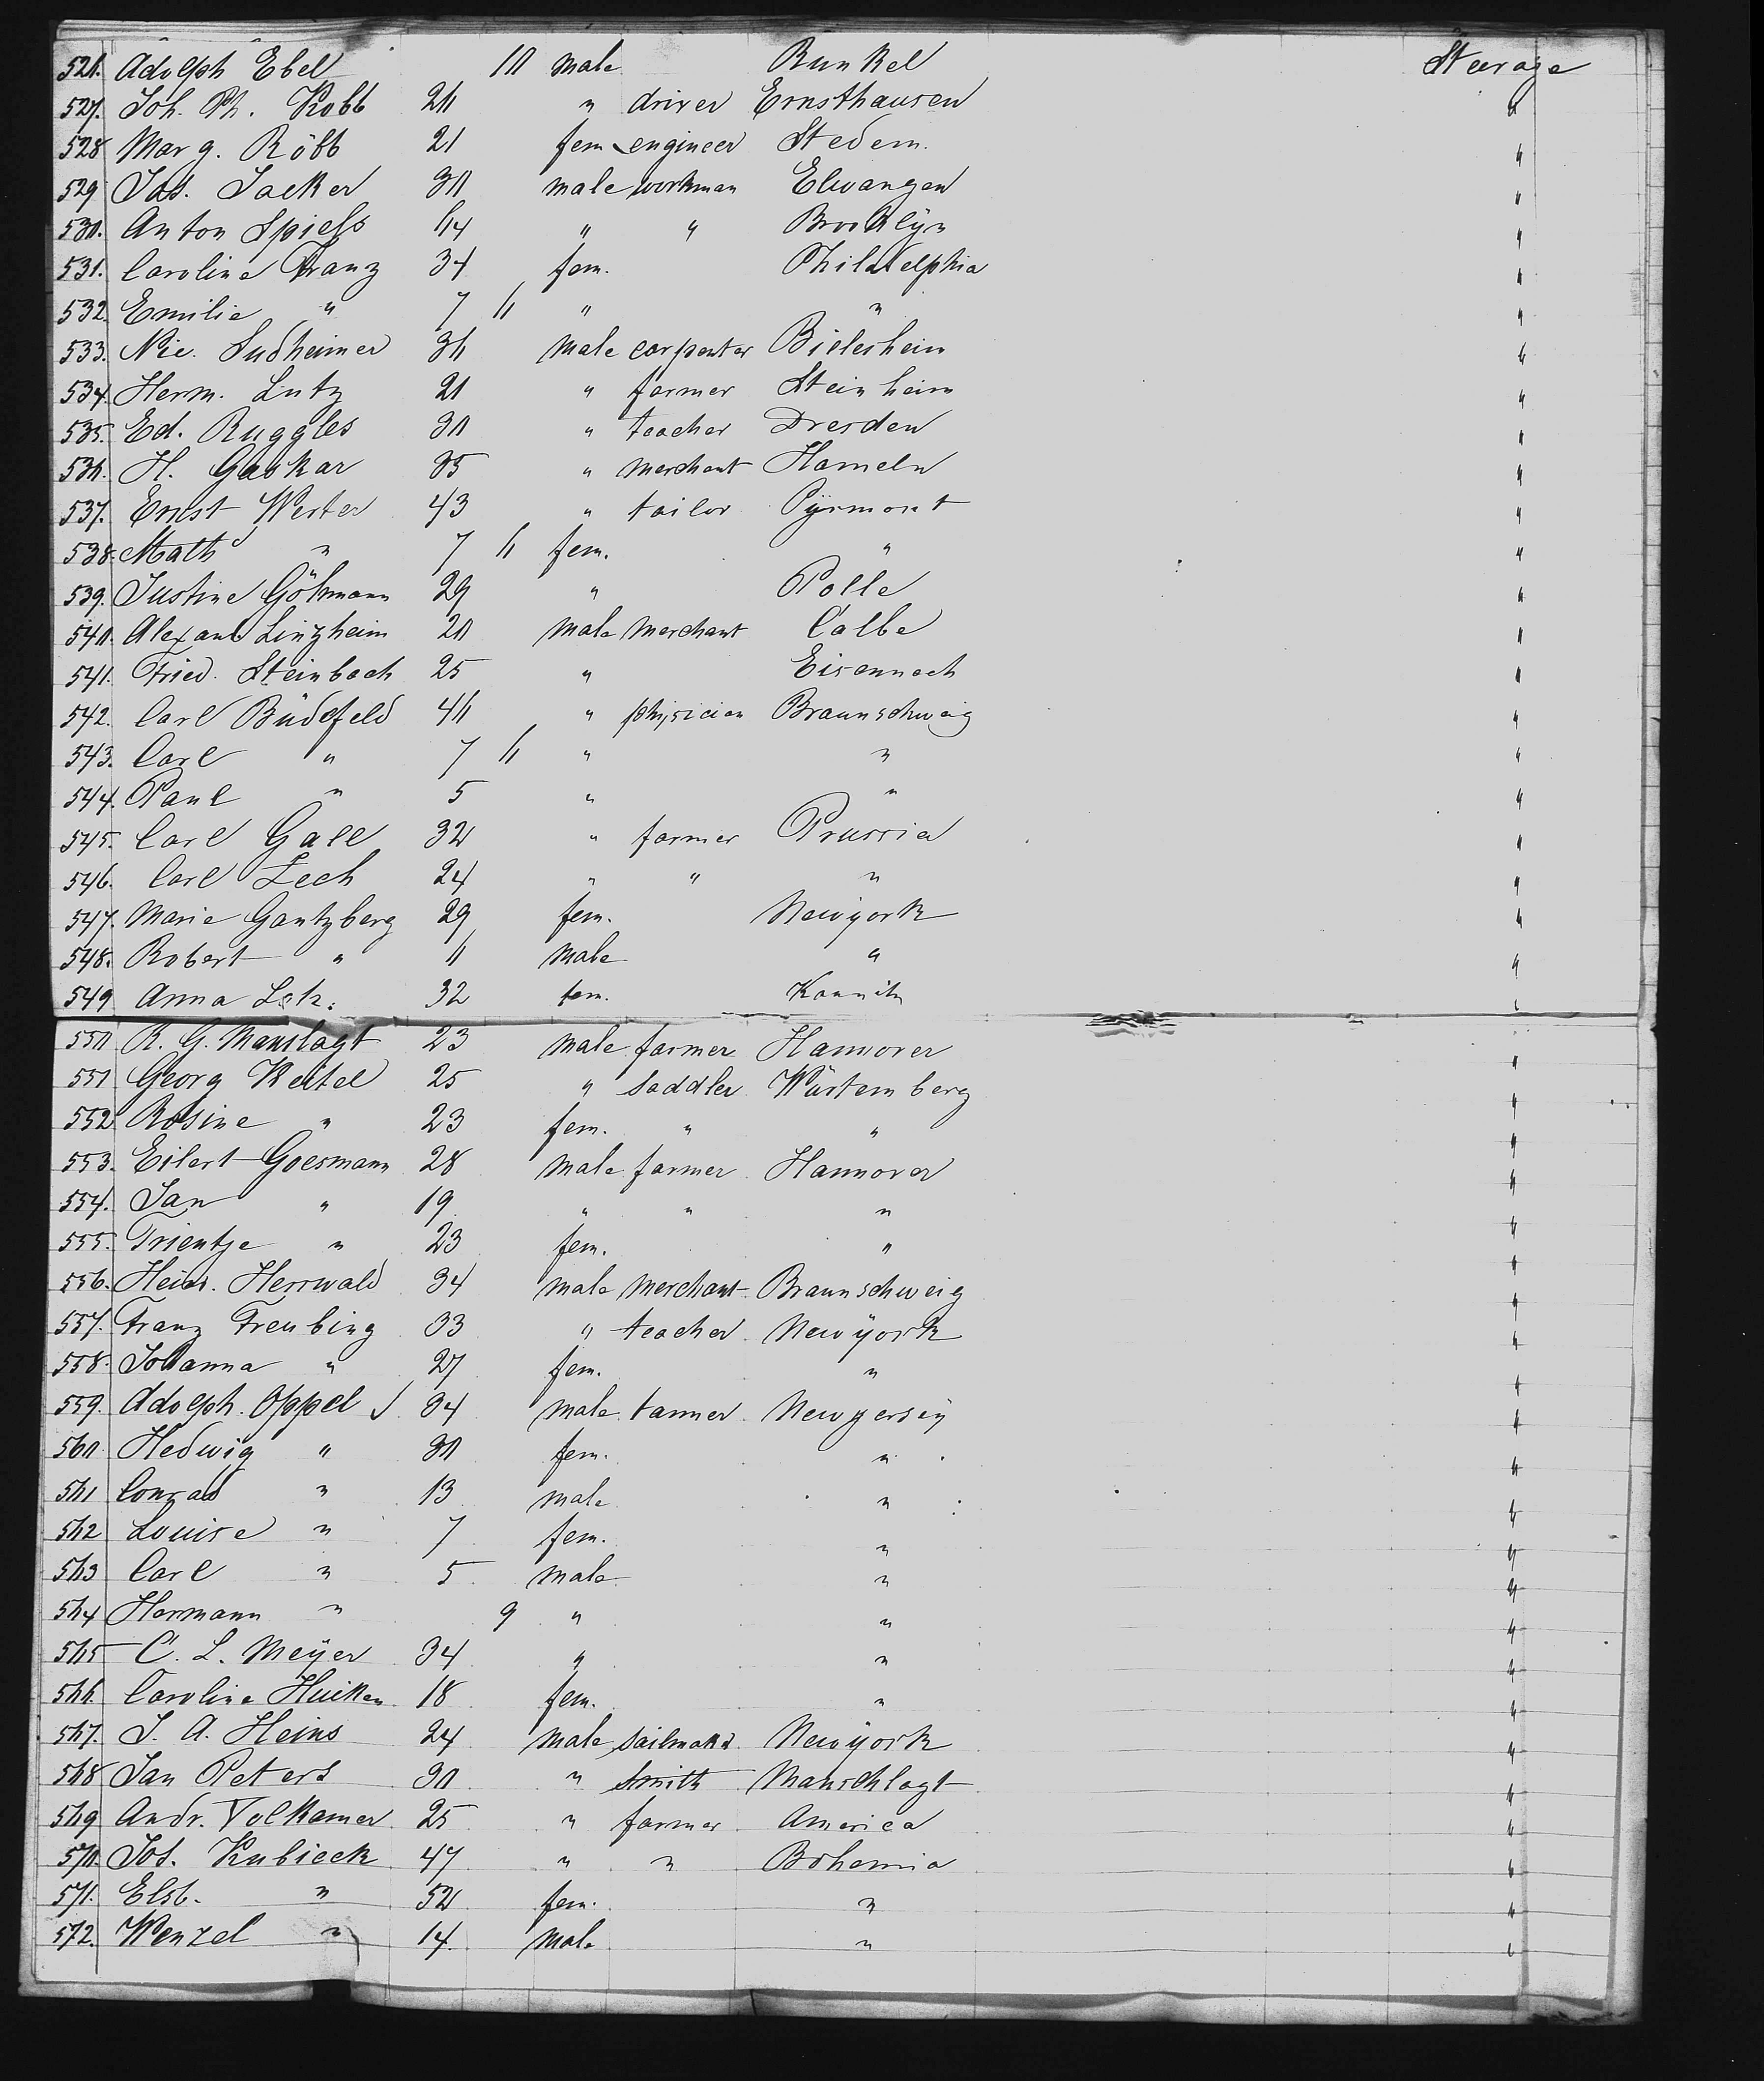 526. Adolph Ebel 10 male Runkel Steerage
527. Joh. Ph. Kobb 26 " driver Ernsthausen "
528 Marg. Röbb 21 fem engineer Stedem. "
529 Jos. Jacker 30 male workman Elwangen "
530. Anton Spiess 64 " " Brooklÿn "
531. Caroline Franz 34 fem. Philadelphia "
532. Emilie " 7 6 " " "
533. Nic. Sudheimer 36 male carpenter Bielesheim "
534. Herm. Lutz 21 " farmer Steinheim "
535. Ed. Ruggles 30 " teacher Dresden "
536. H. Gaskar 35 " merchant Hameln "
537. Ernst Werter 43 " tailor Pÿrmont "
538. Math " 7 6 fem. " "
539. Justine Göhmann 29 " Polle "
540. Alexand Linzheim 20 male merchant Calbe "
541. Fried. Steinbach 25 " Eisennach "
542. Carl Büdefeld 46 " phÿsician Braunschweig "
543. Carl " 7 6 " " "
544. Paul " 5 " " "
545. Carl Gall 32 " farmer Prussia "
546. Carl Zech 24 " " " "
547. Marie Gantzberg 29 fem. Newÿork "
548. Robert " 6 male " "
549 Anna 32 fem. "
550 R. G. Manslagt 23 male farmer Hannover "
551 Georg Keitel 25 " saddler Würtemberg "
552 Rosine " 23 fem. " " "
553. Eilert Goesmann 28 male farmer Hannover "
554. Jan " 19 " " " "
555. Trientje " 23 fem. " "
556. Heinr. Herrwald 34 male merchant Braunschweig "
557. Franz Freubing 33 " teacher Newÿork "
558. Johanna " 27 fem. " "
559. Adolph. Oppel 34 male tanner Newjersëy "
560 Hedwig " 30 fem. " "
561 Conrad " 13 male " "
562 Louise " 7 fem. " "
563 Carl " 5 male " "
564 Hermann " 9 " " "
565 C. L. Meÿer 34 " " "
566. Caroline Huiken 18 fem. " "
567. J. A. Heins 24 male sailmaker Newÿork "
568 Jan Peters 30 " smith Manschlagt "
569 Andr. Volkamer 25 " farmer America "
570. Jos. Kubicek 47 " " Bohemia "
571. Elsb. " 52 fem. " "
572. Wenzel " 14 male " "